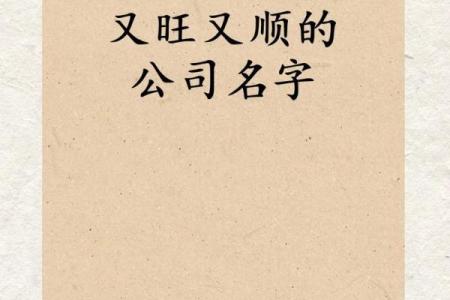 又旺又顺的
公司名字